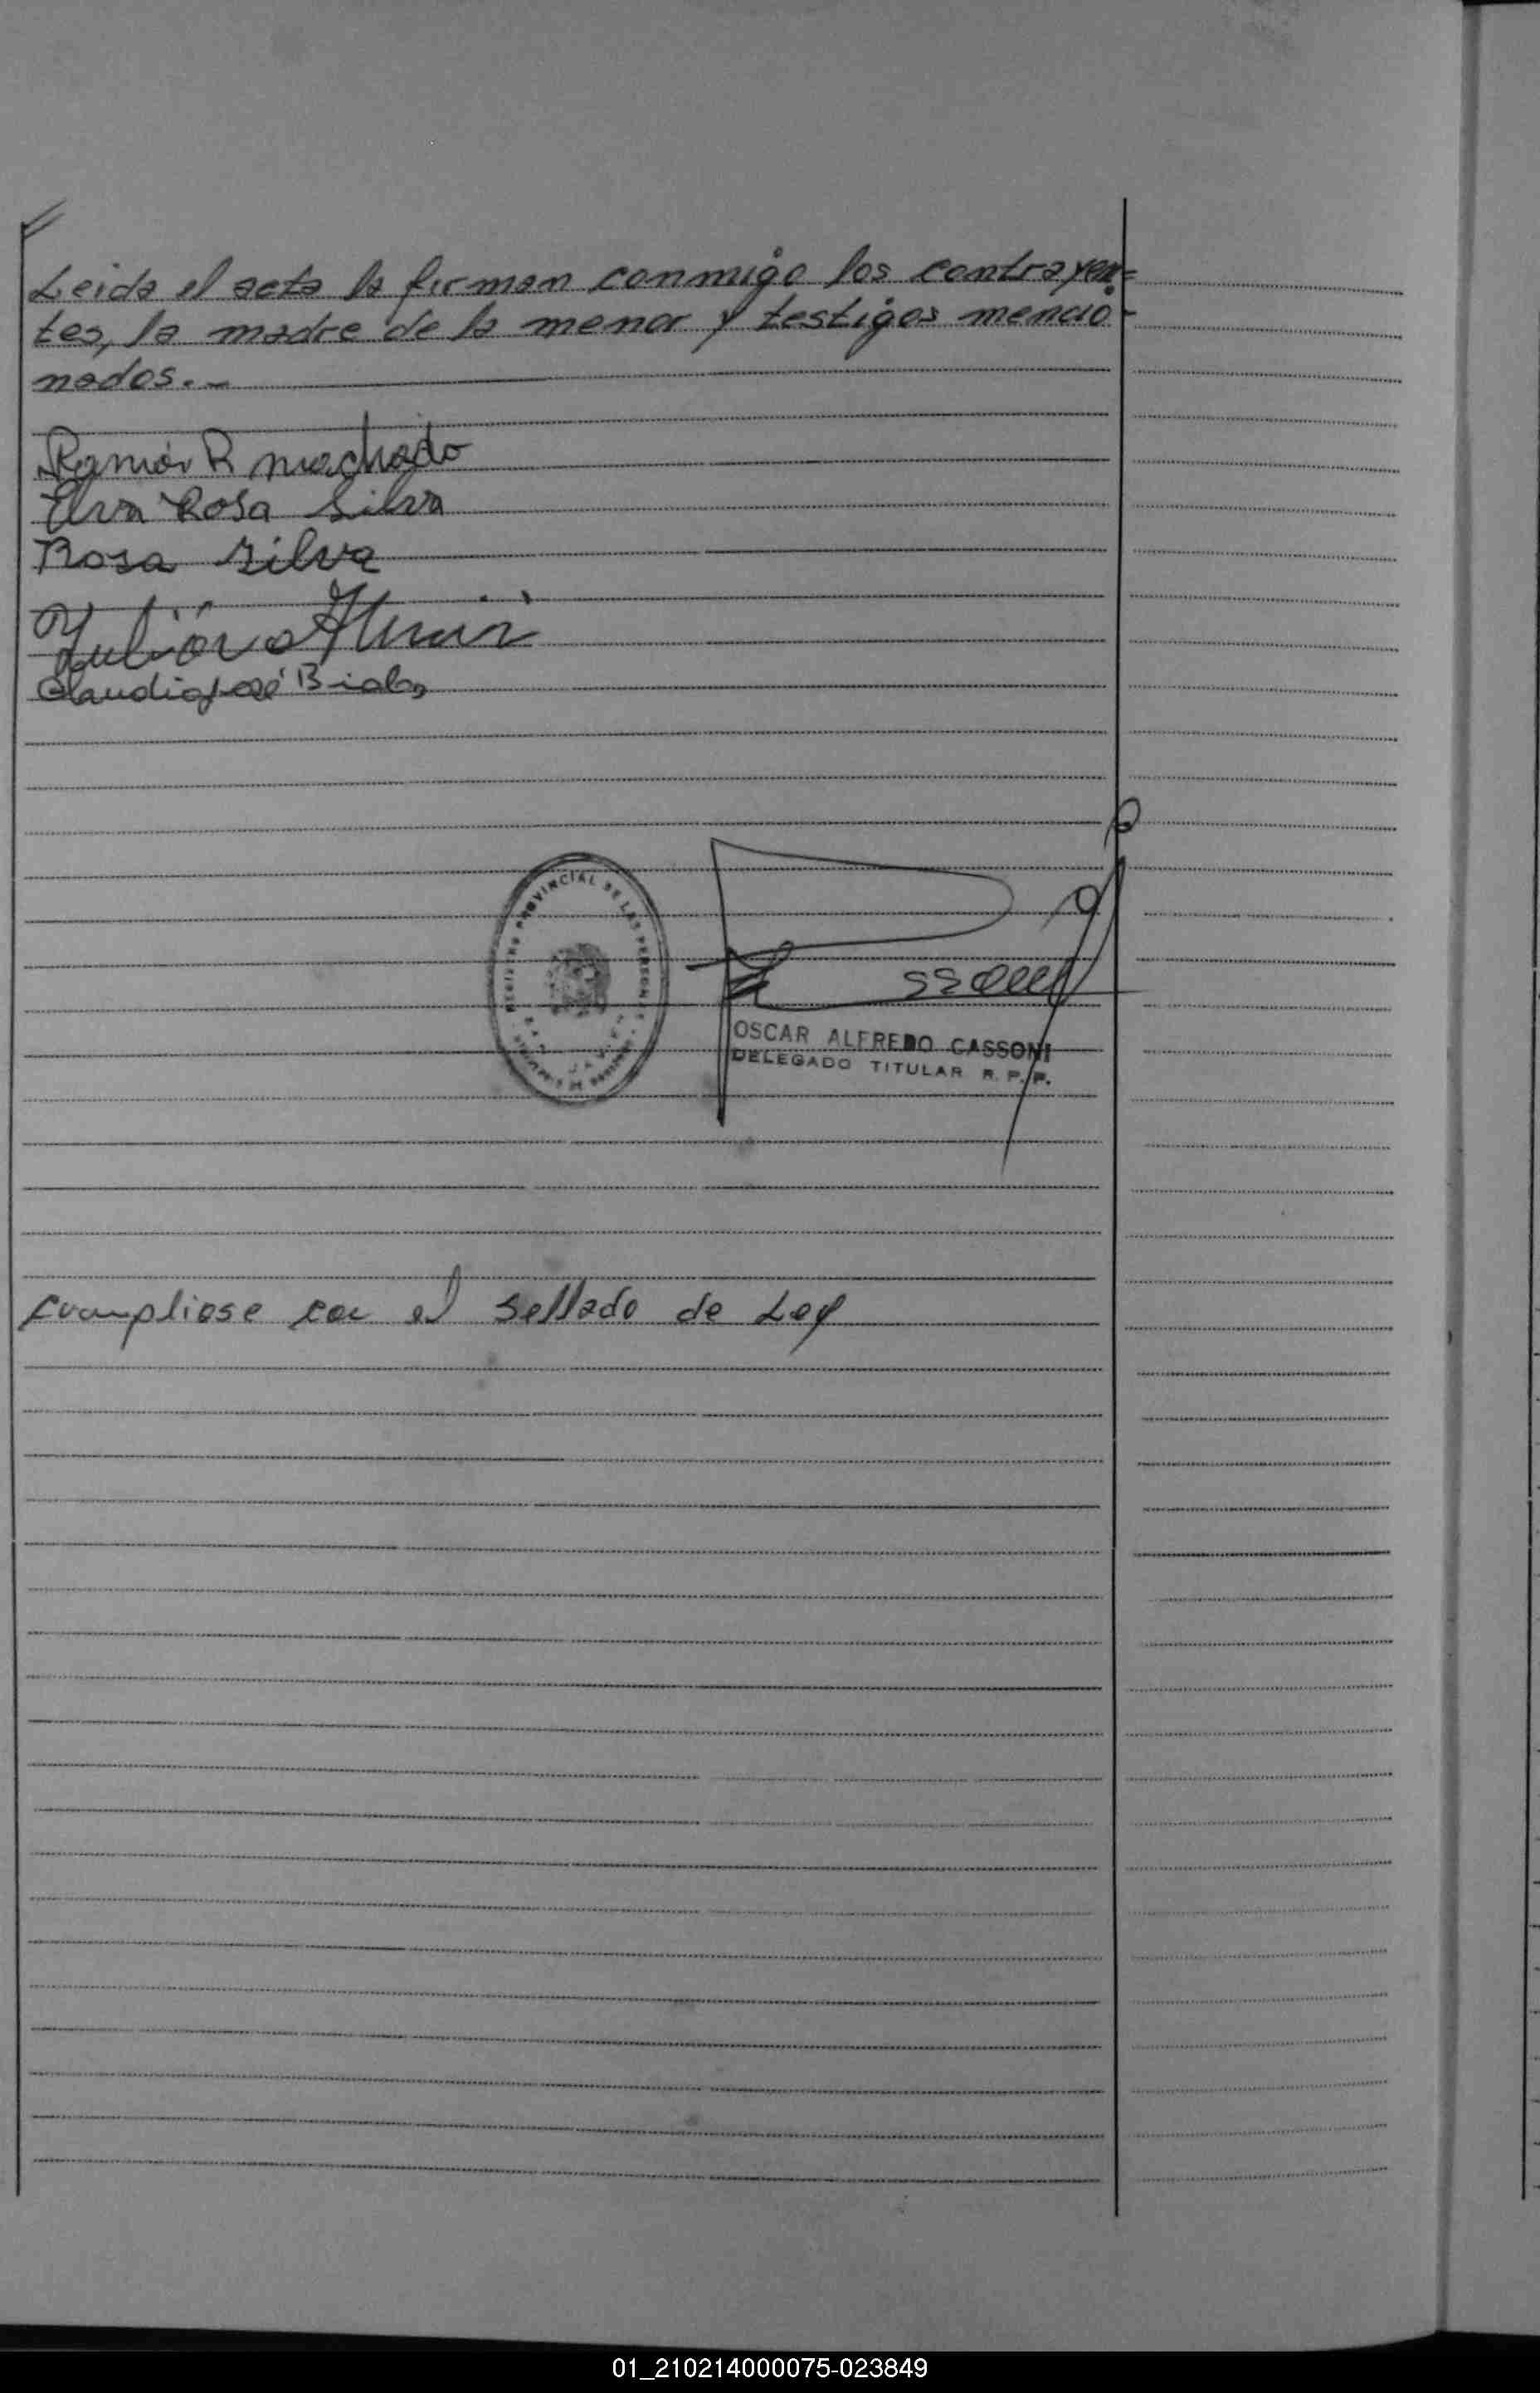 Leida el acta la firman conmigo los contrayen=
tes, la madre de la menor y testigos mencio-
nados.-
Ramón R machado
Elva Rosa Silva
Rosa Silva
Claudio José
REGISTRO PROVINCIAL DE LAS PERSONAS
OSCAR ALFREDO CASSONI
DELEGADO TITULAR R. P. P.
cumpliose con el sellado de Ley
01_210214000075-023849